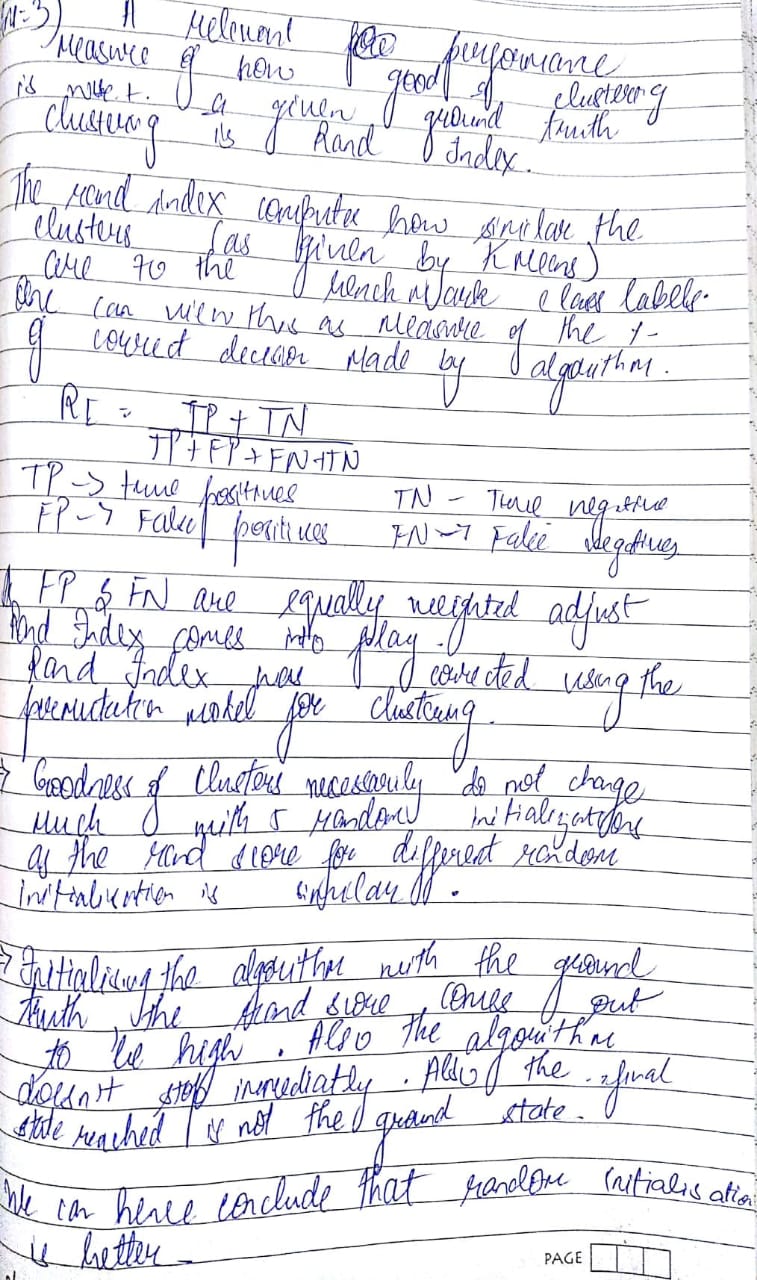 A relevant for performance
measure of how good of clustering
is w.r.t. a given ground truth
clustering is Rand Index.
The rand index computes how similar the
clusters (as given by K Means)
are to the benchmark class labels.
One can view this as measure of the %
of correct decision made by algorithm.
RI = TP + TN
TP + FP + FN + TN
TP -> true positives TN - True negative
FP -> False positives FN -> False Negatives
FP & FN are equally weighted adjust
Rand Index comes into play.
Rand Index was corrected using the
permutation model for clustering.
-> Goodness of clusters necessarily do not change
much with 5 random initializations
as the rand score for different random
initialization is similar.
-> Initialising the algorithm with the ground
truth, the Rand score comes out
to be high. Also the algorithm
doesn't stop immediately. Also the final
state reached is not the ground state.
We can hence conclude that random initialisation
is better
PAGE